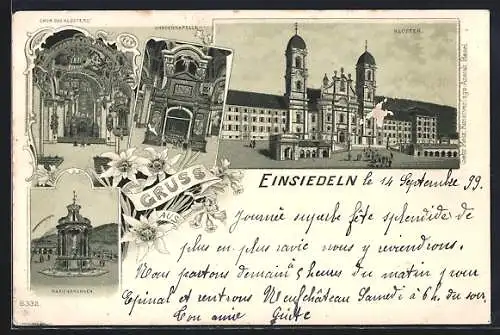 CHOR DES KLOSTERS
GNADENKAPELLE
KLOSTER.
Gebr. Metz, Kunstverlags-Anstalt, Basel.
GRUSS
AUS
EINSIEDELN le 14 Septembre 99.
Journée superbe fête splendide de
plus en plus ravie nous y reviendrons.
Nous partons demain 5 heures du matin pour
Epinal et rentrons Neufchâteau Samedi à 6 h. du soir,
Ton amie
MARIENBRUNNEN.
6332